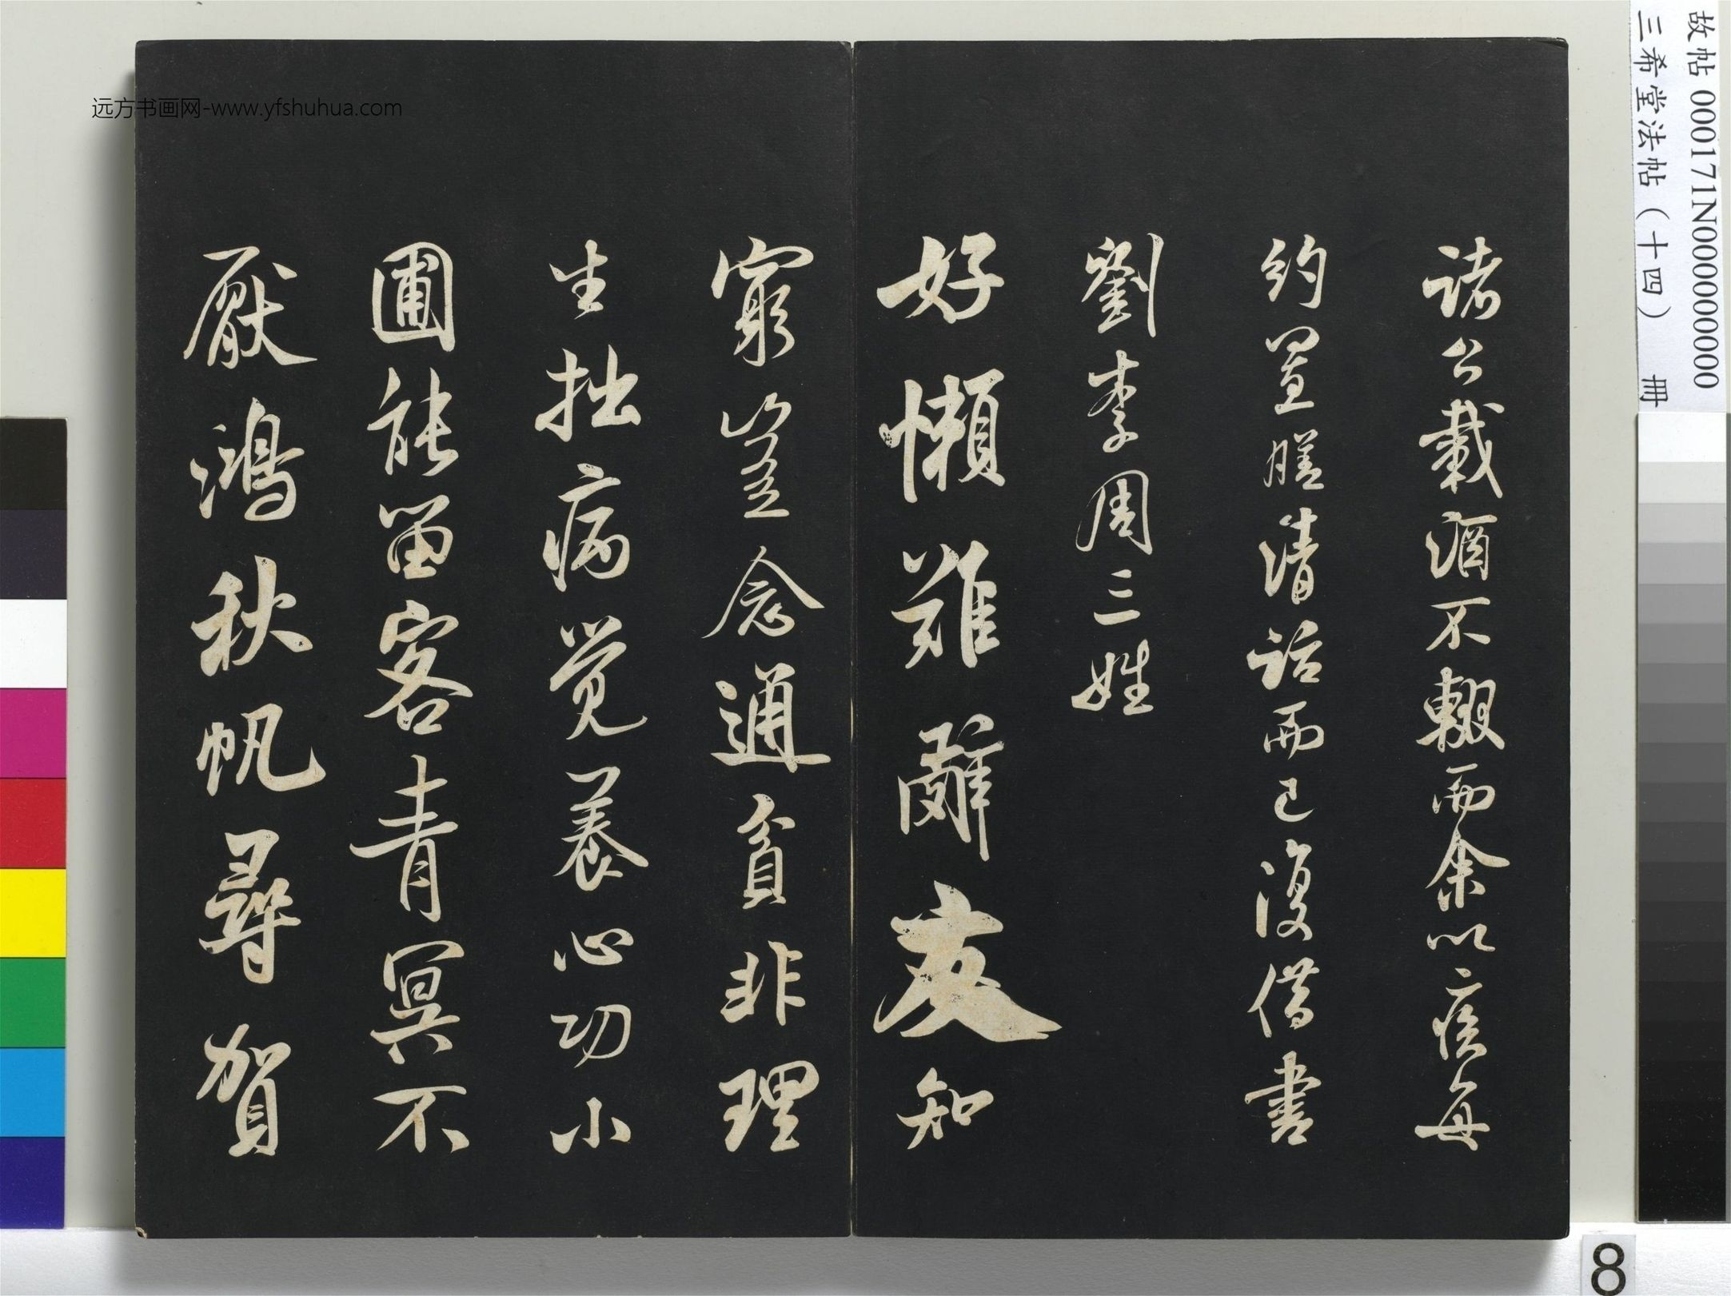 諸公載酒不輟而余以疾每
約置膳清話而已復借書
劉李周三姓
好懶難辭友知
窮豈念通貧非理
生拙病覺養心功小
圃能留客青冥不
厭鴻秋帆尋賀
远方书画网-www.yfshuhua.com
故帖 000171N000000000
三希堂法帖（十四） 冊
8